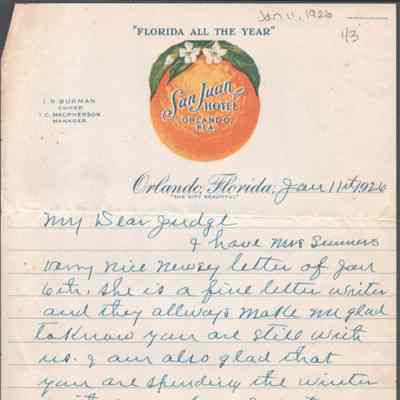 Jan 11, 1926
1/3
"FLORIDA ALL THE YEAR"
San Juan
HOTEL
ORLANDO,
FLA.
J. R. BURMAN
OWNER
J. C. MACPHERSON
MANAGER
Orlando, Florida, Jan 11th 1926
"THE CITY BEAUTIFUL"
My Dear Judge
I have Mrs Summers
varry nice newsey letter of Jan
6th. she is a fine letter writer
and they allways make me glad
to know you are still with
us. I am also glad that
your are spending the winter